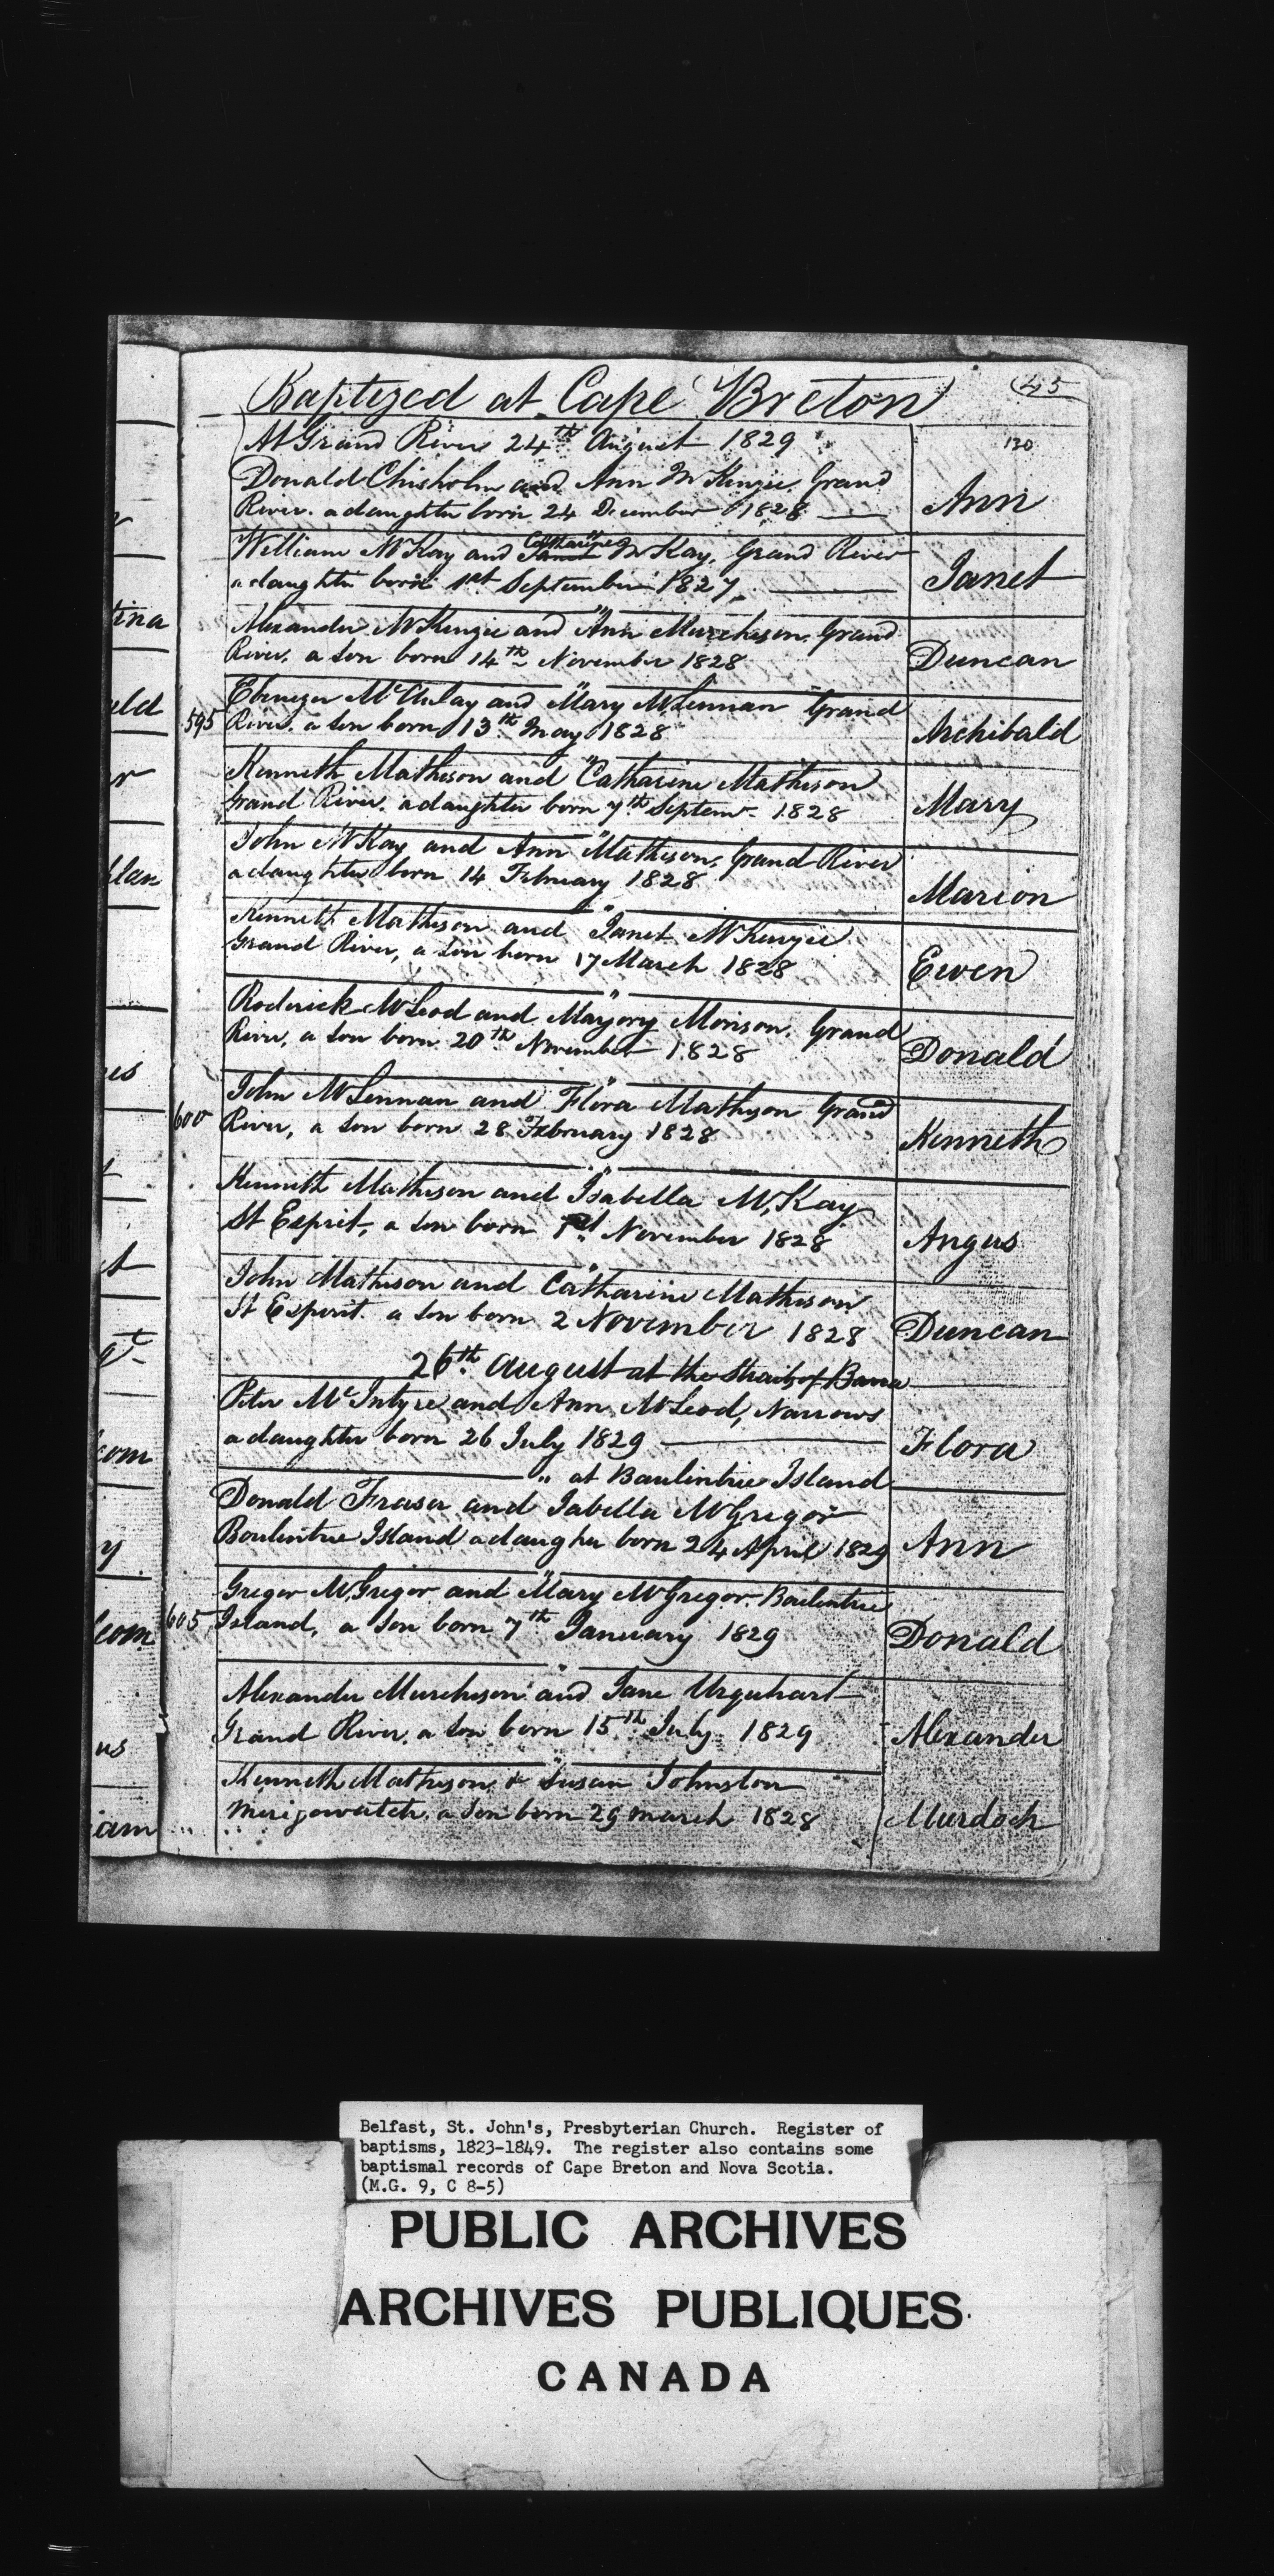 Baptized at Cape Breton 45
At Grand River 24th August 1829 120
Donald Chisholm and Ann McKenzie Grand
River. a daughter born 24 December 1828 Ann
William McKay and Janet Catharine McKay, Grand River
a daughter born 1st September 1827 Janet
Alexander McKenzie and Ann Murcheson. Grand
River. a son born 14th November 1828 Duncan
Ebenezer McAulay and Mary McLennan Grand
595 River. a son born 13th May 1828 Archibald
Kenneth Matheson and Catharine Matheson
Grand River. a daughter born 7th Septem- 1828 Mary
John McKay and Ann Matheson. Grand River
a daughter born 14 February 1828 Marion
Kenneth Matheson and Janet McKenzie
Grand River, a son born 17 March 1828 Ewen
Roderick McLeod and Marjory Morison. Grand
River, a son born 20th November 1828 Donald
John McLennan and Flora Matheson Grand
600 River, a son born 28 February 1828 Kenneth
Kenneth Matheson and Isabella McKay
St Esprit, a son born 1st November 1828 Angus
John Matheson and Catharine Matheson
St Esperit. a son born 2 November 1828 Duncan
26th August at the Straits of Barra
Peter McIntyre and Ann McLeod, Narrows
a daughter born 26 July 1829 Flora
" at Baulintrie Island
Donald Fraser and Isabella McGregor
Boulintrie Island a daugher born 24 April 1829 Ann
Gregor McGregor and Mary McGregor. Baulintrie
605 Island, a son born 7th January 1829 Donald
Alexander Murcheson and Jane Urquhart
Grand River, a son born 15th July 1829 Alexander
Kenneth Matheson & Susan Johnston
a son born 29 march 1828 Murdoch
tina
ald
es
com
y
com
us
iam
Belfast, St. John's, Presbyterian Church. Register of
baptisms, 1823-1849. The register also contains some
baptismal records of Cape Breton and Nova Scotia.
(M.G. 9, C 8-5)
PUBLIC ARCHIVES
ARCHIVES PUBLIQUES
CANADA